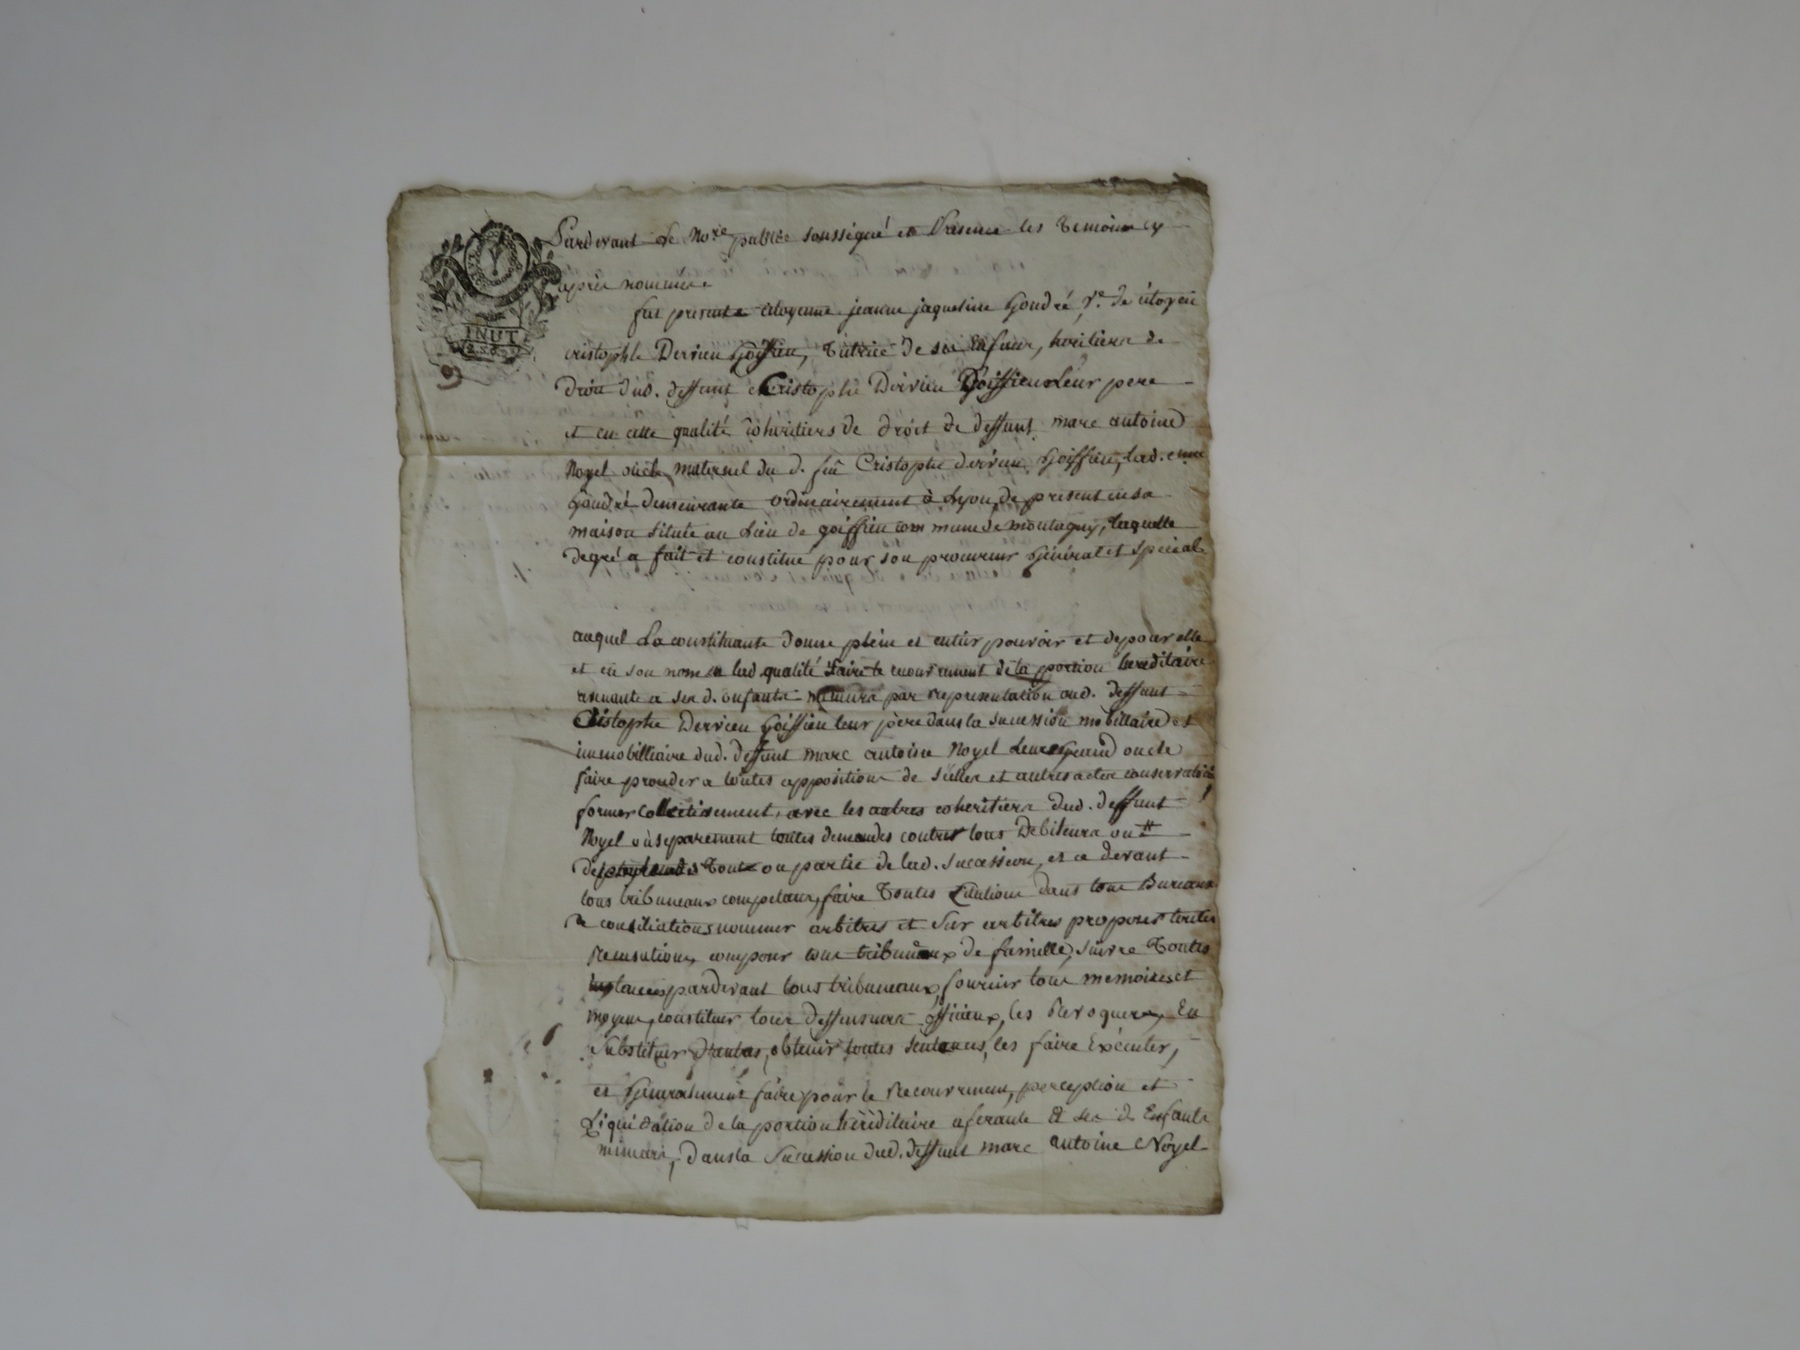 Pardevant Le No.re public soussigné et Presence les Temoins cy
après nommés
fut presente citoyenne jeanne jaqueline Goudré, v.e de citoyen
cristophle Dervieu Goiffieu, Tutrice de ses Enfans, heritiers de
droit dud. deffunt Cristophe Dervieu Goiffieu Leur pere
et en cette qualité Cohéritiers de droit de deffunt marc antoine
Noyel oncle maternel du d. feu Cristophe dervieu Goiffieu, lad. c.enne
Goudré demeurante ordinairement à Lyon, de present en sa
maison située au Lieu de goiffieu commune de montagny, laquelle
de gré a fait et constitué pour son procureur Général et special
auquel La constituante donne plein et entier pouvoir et de pour elle
et en son nom lad. qualité faire le recouvrement de la portion hereditaire
revenante a ses d. enfants mineurs par representation dud. deffunt
Cristophe Dervieu Goiffieu leur père dans la sucession mobiliaire et
immobilliaire dud. deffunt marc antoine Noyel Leur grand oncle
faire proceder a toutes appositions de scellés et autres actes conservatoires
former collectivement, avec les autres coheritiers dud. deffunt
Noyel où séparement toutes demandes contre tous Debiteurs ou #
de Tout ou partie de lad. sucession, et ce devant
tous tribuneaux competans, faire Toutes Citations dans tous Bureaux
de conciliations nommer arbitres et Sur arbitres proposer toutes
Recusations, composer tous tribuneaux de famille, suivre Toutes
instances pardevant tous tribuneaux, fournir tous memoires et
moyens, constituer tous deffenseurs officieux, les Revoquer, En
Substituer d'autres, obtenir toutes sentences, les faire Exécuter,
et Généralement faire pour le Recouvrement, perception et
Liquidation de la portion héréditaire aferante a ses d. Enfants
mineurs, dans la Sucession dud. deffunt marc antoine Noyel